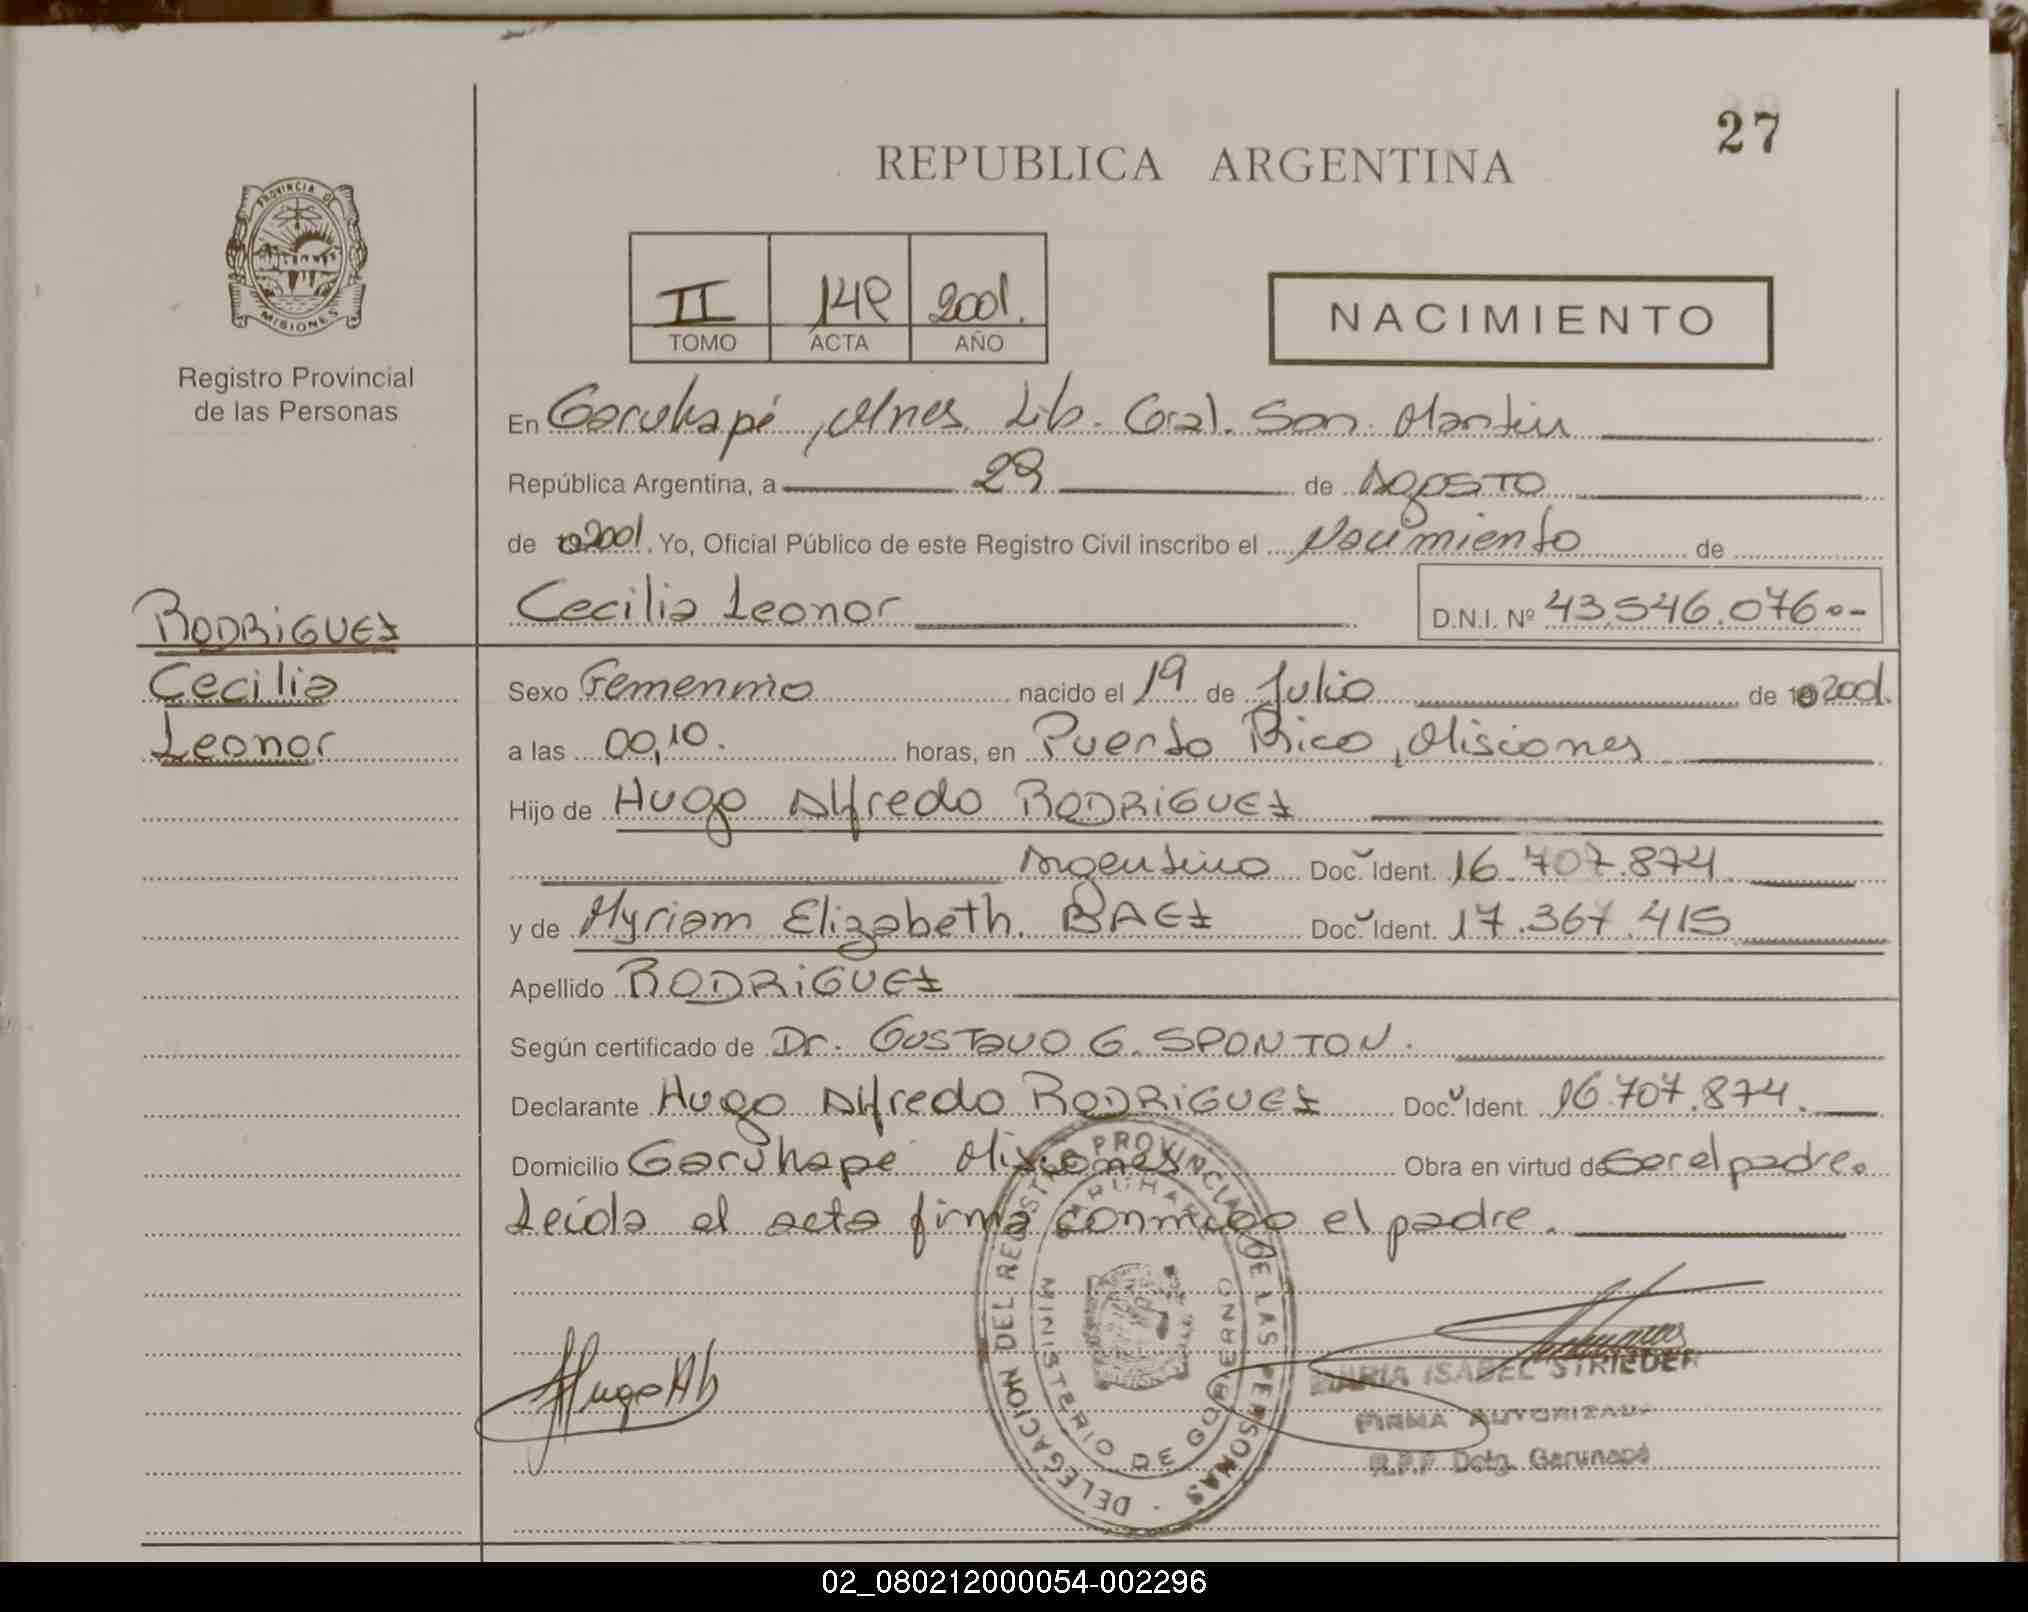 27
REPUBLICA ARGENTINA
PROVINCIA DE
MISIONES
Registro Provincial
de las Personas
II 149 2001.
TOMO ACTA AÑO
NACIMIENTO
En Garuhapé, Mnes. Lib. Gral. San Martin
República Argentina, a 29 de Agosto
de 2001. Yo, Oficial Público de este Registro Civil inscribo el Nacimiento de
Cecilia Leonor D.N.I. Nº 43.546.076.-
RODRIGUEZ
Cecilia
Leonor
Sexo Femenino nacido el 19 de Julio de 19 2001.
a las 00,10. horas, en Puerto Rico, Misiones
Hijo de Hugo Alfredo RODRIGUEZ
Argentino Doc. Ident. 16.707.874
y de Myriam Elizabeth. BAEZ Doc. Ident. 17.367.415
Apellido RODRIGUEZ
Según certificado de Dr. GUSTAVO G. SPONTON.
Declarante Hugo Alfredo RODRIGUEZ Doc. Ident. 16.707.874.
Domicilio Garuhapé Misiones Obra en virtud de ser el padre.
Leída el acta firma conmigo el padre.
DELEGACION DEL REGISTRO PROVINCIAL DE LAS PERSONAS
GARUHAPE
MINISTERIO DE GOBIERNO
Hugo
MARIA ISABEL STRIEDER
FIRMA AUTORIZADA
R.P.P. Dctg. Garuhapé
02_080212000054-002296